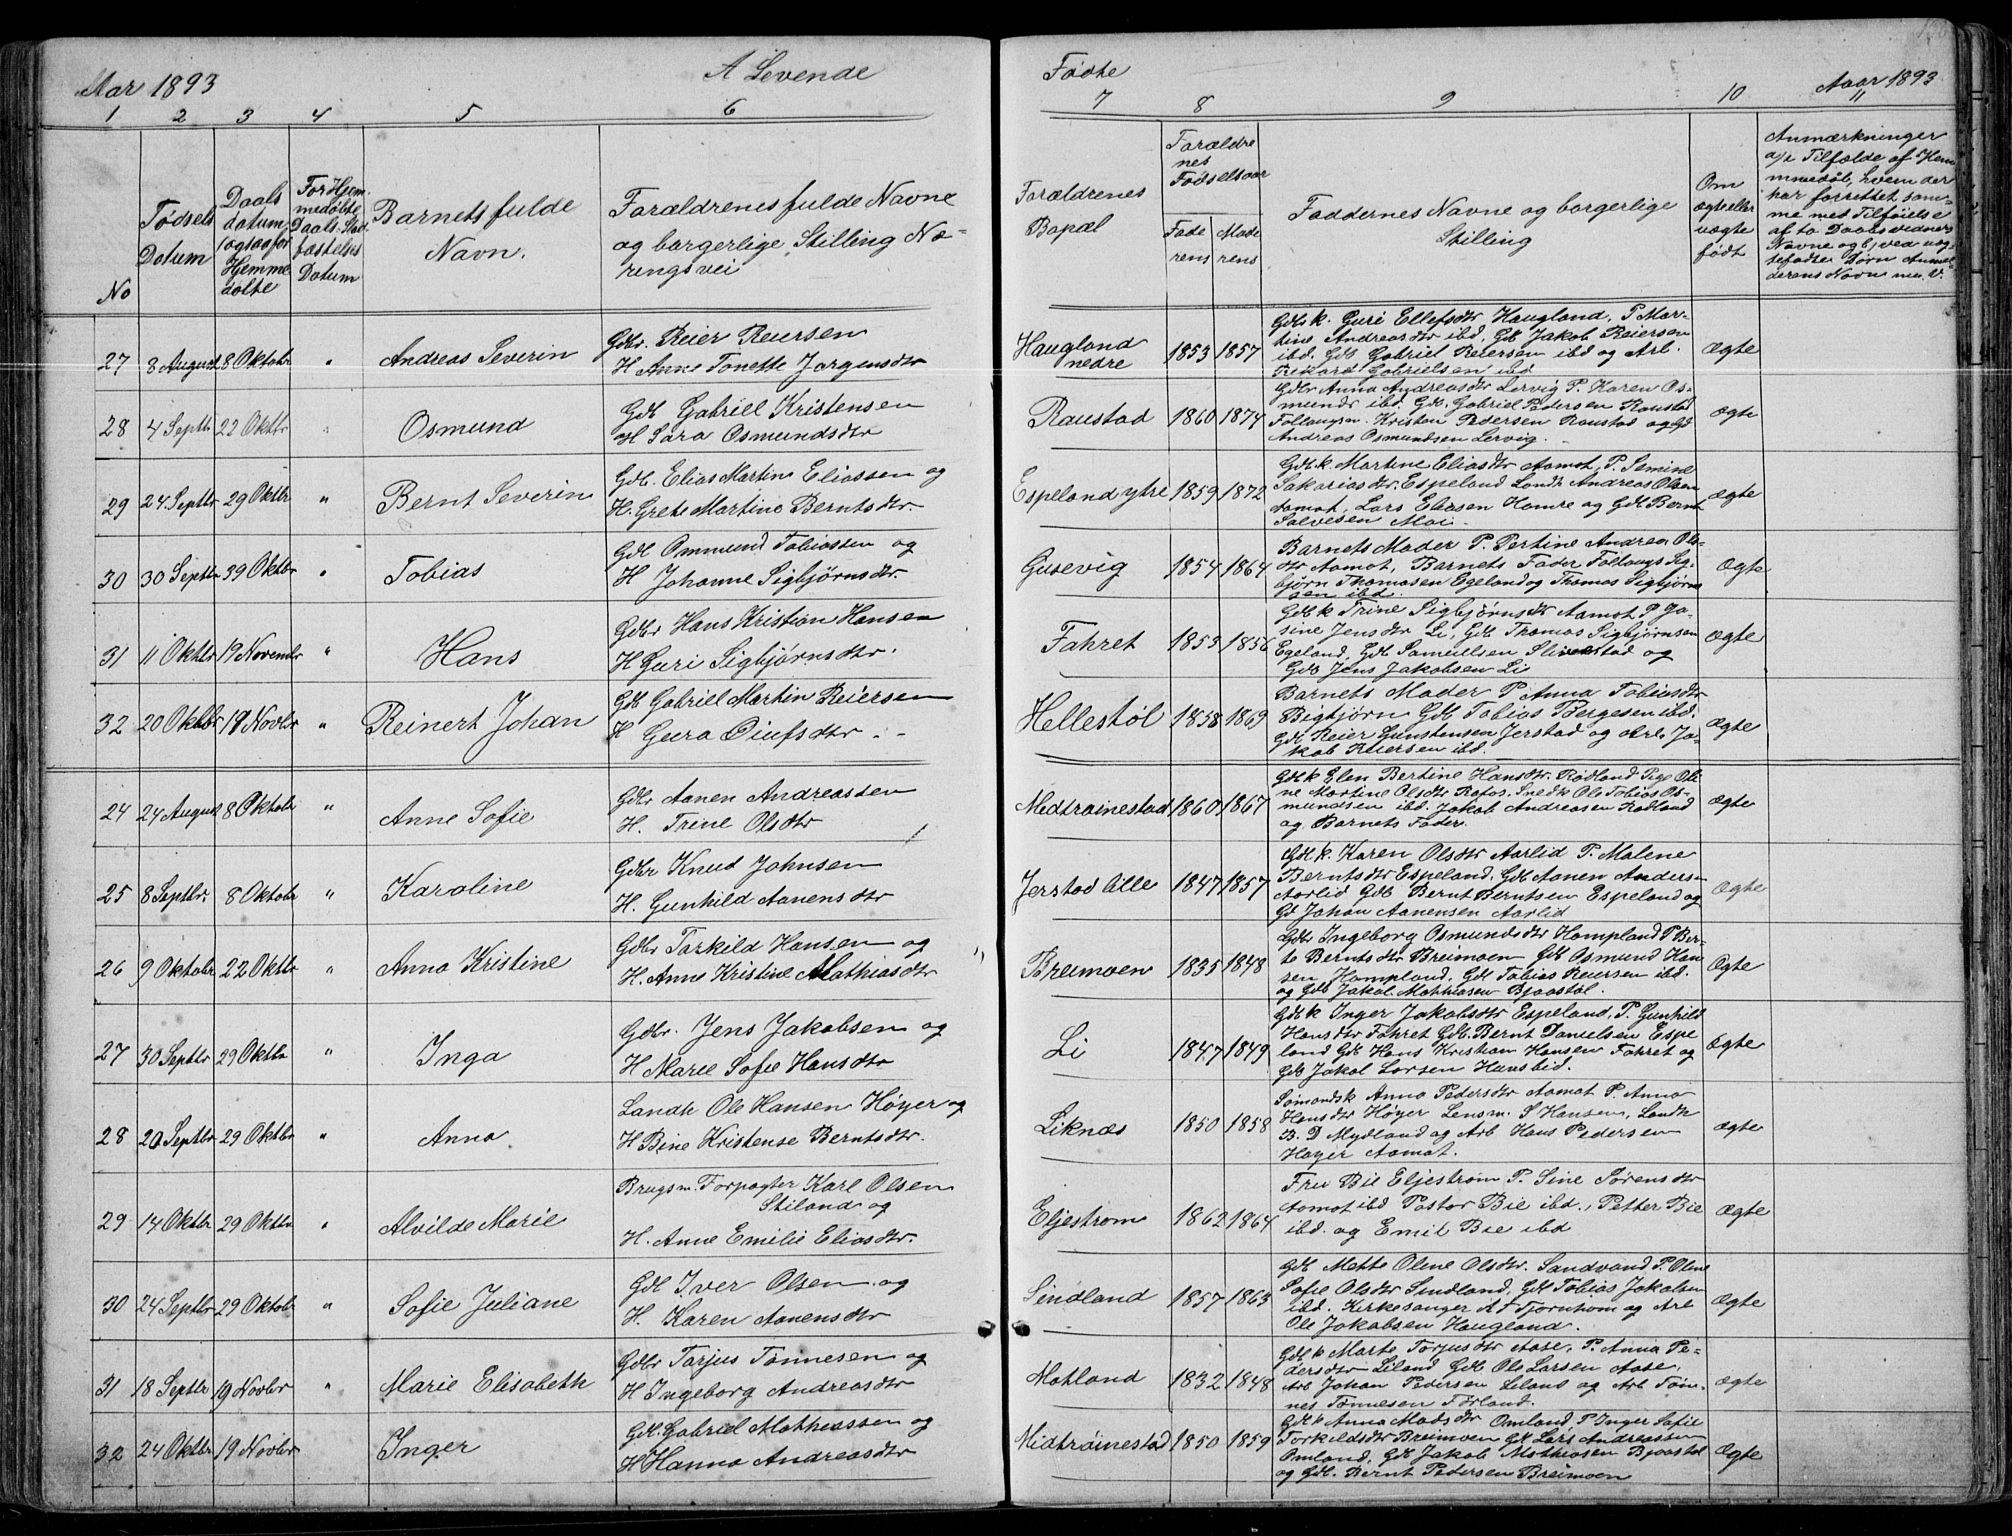 Aar 1893
A Levende
1 2 3 4 5 6
No
Fødsels Datum
Daabs datum, ogsaa for Hjemme døbte
For Hjemmedøbte Daabs Stadfæstelses Datum
Barnets fulde Navn.
Forældrenes fulde Navne og borgerlige Stilling Næringsvei
27 8 August 8 Oktobr " Andreas Severin Gdbr. Reier Reiersen
H Anne Tonette Jørgensdtr
28 4 Septbr 22 Oktbr " Osmund Gdb Gabriel Kristensen
og H Sara Osmundsdtr
29 24 Septbr 29 Oktbr " Bernt Severin Gdb. Elias Martin Eliassen og
H. Grete Martine Berntsdtr.
30 30 Septbr 39 Oktbr " Tobias Gdb Ommund Tobiassen og
H Johanne Sigbjørnsdtr.
31 11 Oktbr 19 Novembr " Hans Gdbr Hans Kristian Hansen
H Guri Sigbjørnsdtr.
32 20 Oktbr 19 Novbr " Reinert Johan Gdb Gabriel Martin Reiersen
H Gura
24 24 August 8 Oktobr " Anne Sofie Gdbr Aanen Andreassen
H. Trine Olsdtr
25 8 Septbr. 8 Oktobr " Karoline Gdbr Knud Johnsen
H. Gunhild Aanensdtr
26 9 Oktobr 22 Oktbr " Anna Kristine Gdbr Torkild Hansen og
H. Anne Kristine Mathiasdtr
27 30 Septbr 29 Oktbr " Inga Gdbr. Jens Jakobsen og
H Marie Sofie Hansdtr
28 20 Septbr 29 Oktbr " Anna Landh Ole Hansen Høyer og
H Bine Kristense Berntsdtr.
29 14 Oktbr 29 Oktbr " Alvilde Marie Brugsm. Forpagter Karl Olsen
Stiland og
H. Anne Emilie Eliasdtr.
30 24 Septbr 29 Oktobr " Sofie Juliane Gdb Iver Olsen og
H. Karen Aanensdtr
31 18 Septbr 19 Novbr " Marie Elisabeth Gdbr Tarjus Tønnesen og
H Ingeborg Andreasdtr
32 24 Oktbr 19 Novbr " Inger Gdb. Gabriel Mathiassen og
H Hanna Andreasdtr
Fødte
Aaar 1893
7 8 9 10 11
Forældrenes Bopæl
Forældrenes Fødselsaar
Faderens
Moderens
Faddernes Navne og borgerlige Stilling
Om ægte eller uægte født
Anmærkninger
a/i Tilfælde af Hjemmedøb, hvem der har forrettet samme med Tilføielse af to Daabsvidners Navne og b, ved uægtefødte Børn Anmelderens Navn m.v.
Haugland nedre 1853 1857 Gdbk. Guri Ellefsdtr Haugland, P Martine Andreasdtr ibd, Gdb Jakob Reiersen
ibd. Gdb Gabriel Reiersen ibd og Arb.
Rikard Gabrielsen ibd Ægte
Raustad 1860 1874 Gdbr Anna Andreasdtr Lervig P. Karen Osmundr ibd. Gdb. Gabriel Pedersen Raustad
Kristen Pedersen Raustad og Gd
Andreas Osmundsen Lervig. Ægte
Espeland ytre 1859 1872 Gdbk. Martine Eliasdtr Aamot, P. Semine
Sakariasdtr. Espeland Landh Andreas Olsen
Aamot, Lars Eliasen Homre og Gdb Bernt
Salvesen Moi. Ægte
Gusevig 1854 1864 Barnets Moder P. Pertine Andrea Olsdtr Aamot, Barnets Fader Sigbjørn Thomasen Egeland og Thomas Sigbjørnsen ibd. Ægte
Fahret 1853 1856 Gdbk Trine Sigbjørnsdtr Aamot P Josine Jensdtr Li, Gdb Thomas Sigbjørnsen
Egeland, Gdb Samuelsen og
Gdb Jens Jakobsen Li Ægte
Hellestøl 1858 1869 Barnets Moder P Anna Tobiasdtr
Bigbjørn Gdb Tobias Bergesen ibd.
Gdb Reier Gunstensen Jerstad og Arb. Jakob Reiersen ibd. Ægte
Midtrøinestad 1860 1867 Gdbk Elen Bertine Hansdtr. Rødland Pige Oline Martine Olsdtr Røfos. Snedk Ole Tobias Osmundsen ibd. Jakob Andreasen Rødland
og Barnets Fader. Ægte
Jerstad lille 1847 1857 Gdbk. Karen Olsdtr Aarlid P. Malene
Berntsdtr Espeland. Gdb Aanen Andersn
Aarlid Gdb Bernt Berntsen Espeland og
Gd Johan Aanensen Aarlid Ægte
Breimoen 1835 1848 Gdbr Ingeborg Osmundsdtr Hompland P Berta Berntsdtr Breimoen Gdb Osmund Hansen, Hompland, Gdb Tobias Reiersen ibd.
og Gdb Jakob Mathiasen Bjaastøl. Ægte
Li 1847 1849 Gdbk Inger Jakobsdtr Espeland, P. Gunhild
Hansdtr Fahret Gdb Bernt Danielsen Espeland Gdb Hans Kristian Hansen Fahret og
Gdb Jakob Larsen Ægte
Liknæs 1850 1858 Sømandsk Anna Pedersdtr Aamot P. Anna
Hansdtr Høyer Lensm. S Hansen, Landh
B. D Mydland og Arb Hans Pedersen
Høyer Aamot. Ægte
Eljestrøm 1862 1864 Fru Bie Eljestrøm P. Sine Sørensdtr
Aamot ibd Pastor Bie ibd., Petter Bie
ibd. og Emil Bie ibd Ægte
Sindland 1857 1863 Gdb Mette Oline Olsdtr. Sandvand P. Oline
Sofie Olsdtr Sindland, Gdb Tobias Jakobsen
ibd. Kirkesanger A F Tjørnhom og Arb
Ole Jakobsen Haugland. Ægte
Motland 1832 1848 Gdbk Marte Torjusdtr Aase, P. Anna Pedersdtr Liland Gdb Ole Larsen Aase,
Arb Johan Pedersen Liland og Arb Tønnes Tønnesen Førland. Ægte
Midtrøinestad 1850 1859 Gdbk Anna Madsdtr Omland P Inger Sofie
Torkildsdtr Breimoen Gdb Lars Andreassen
Omland, Gdb Jakob Mathiasen Bjaastøl
og Gdb. Bernt Pedersen Breimoen Ægte